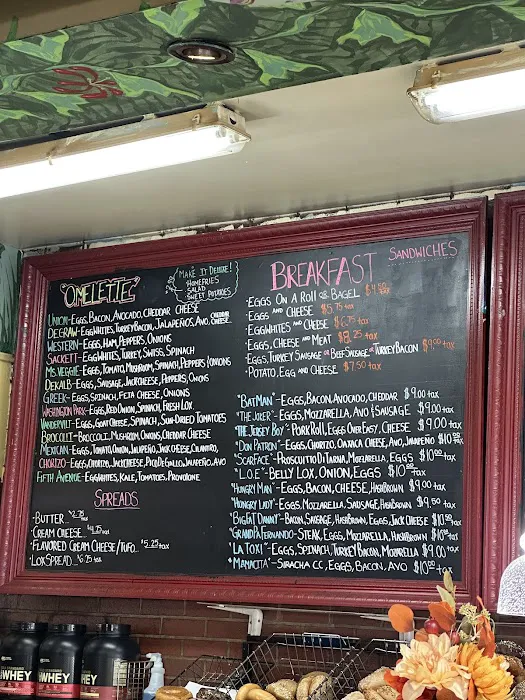 "OMELETTE"
MAKE IT DELUXE!
HOMEFRIES
SALAD
SWEET POTATOES
UNION - EGGS, BACON, AVOCADO, CHEDDAR CHEESE
DEGRAW - EGGWHITES, TURKEY BACON, JALAPEÑOS, AVO, CHEDDAR CHEESE
WESTERN - EGGS, HAM, PEPPERS, ONIONS
SACKETT - EGGWHITES, TURKEY, SWISS, SPINACH
MS. VEGGIE - EGGS, TOMATO, MUSHROOM, SPINACH, PEPPERS & ONIONS
DEKALB - EGGS, SAUSAGE, JACK CHEESE, PEPPERS, ONIONS
GREEK - EGGS, SPINACH, FETA CHEESE, ONIONS
WASHINGTON PARK - EGGS, RED ONION, SPINACH, FRESH LOX
VANDERVILT - EGGS, GOAT CHEESE, SPINACH, SUN-DRIED TOMATOES
BROCOLLI - BROCCOLI, MUSHROOM, ONIONS, CHEDDAR CHEESE
MEXICAN - EGGS, TOMATO, ONION, JALAPEÑO, JACK CHEESE, CILANTRO,
CHORIZO - EGGS, CHORIZO, JACK CHEESE, PICO DE GALLO, JALAPEÑO, AVO
FIFTH AVENUE - EGGWHITES, KALE, TOMATOES, PROVOLONE
SPREADS
- BUTTER $2.75 tax
- CREAM CHEESE $4.75 tax
- FLAVORED CREAM CHEESE/TUFO $5.25 tax
- LOX SPREAD $6.25 tax
BREAKFAST SANDWICHES
- EGGS ON A ROLL OR BAGEL $4.50 tax
- EGG AND CHEESE $5.75 tax
- EGGWHITES AND CHEESE $6.75 tax
- EGGS, CHEESE AND MEAT $8.25 tax
- EGGS, TURKEY SAUSAGE OR BEEF SAUSAGE OR TURKEY BACON $9.00 tax
- POTATO, EGG AND CHEESE $7.50 tax
"BATMAN" - EGGS, BACON, AVOCADO, CHEDDAR $9.00 tax
"THE JOKER" - EGGS, MOZZARELLA, AVO & SAUSAGE $9.00 tax
"THE JERSEY BOY" - PORK ROLL, EGGS OVER EASY, CHEESE $9.00 tax
"DON PATRON" - EGGS, CHORIZO, OAXACA CHEESE, AVO, JALAPEÑO $10.00 tax
"SCARFACE" - PROSCUITTO DI TARMA, MOZARELLA, EGGS $10.00 tax
"L.O.E" - BELLY LOX, ONION, EGGS $10.00 tax
"HUNGRY MAN" - EGGS, BACON, CHEESE, HASHBROWN $9.00 tax
"HUNGRY LADY" - EGGS, MOZZARELLA, SAUSAGE, HASHBROWN $9.50 tax
"BIG FAT DANNY" - BACON, SAUSAGE, HASHBROWN, EGGS, JACK CHEESE $10.50 tax
"GRANDPA FERNANDO" - STEAK, EGGS, MOZARELLA, HASHBROWN $10.00 tax
"LA TOXI" - EGGS, SPINACH, TURKEY BACON, MOZARELLA $9.00 tax
"MAMACITA" - SIRACHA CC, EGGS, BACON, AVO $10.00 tax
WHEY
WHEY
WHEY